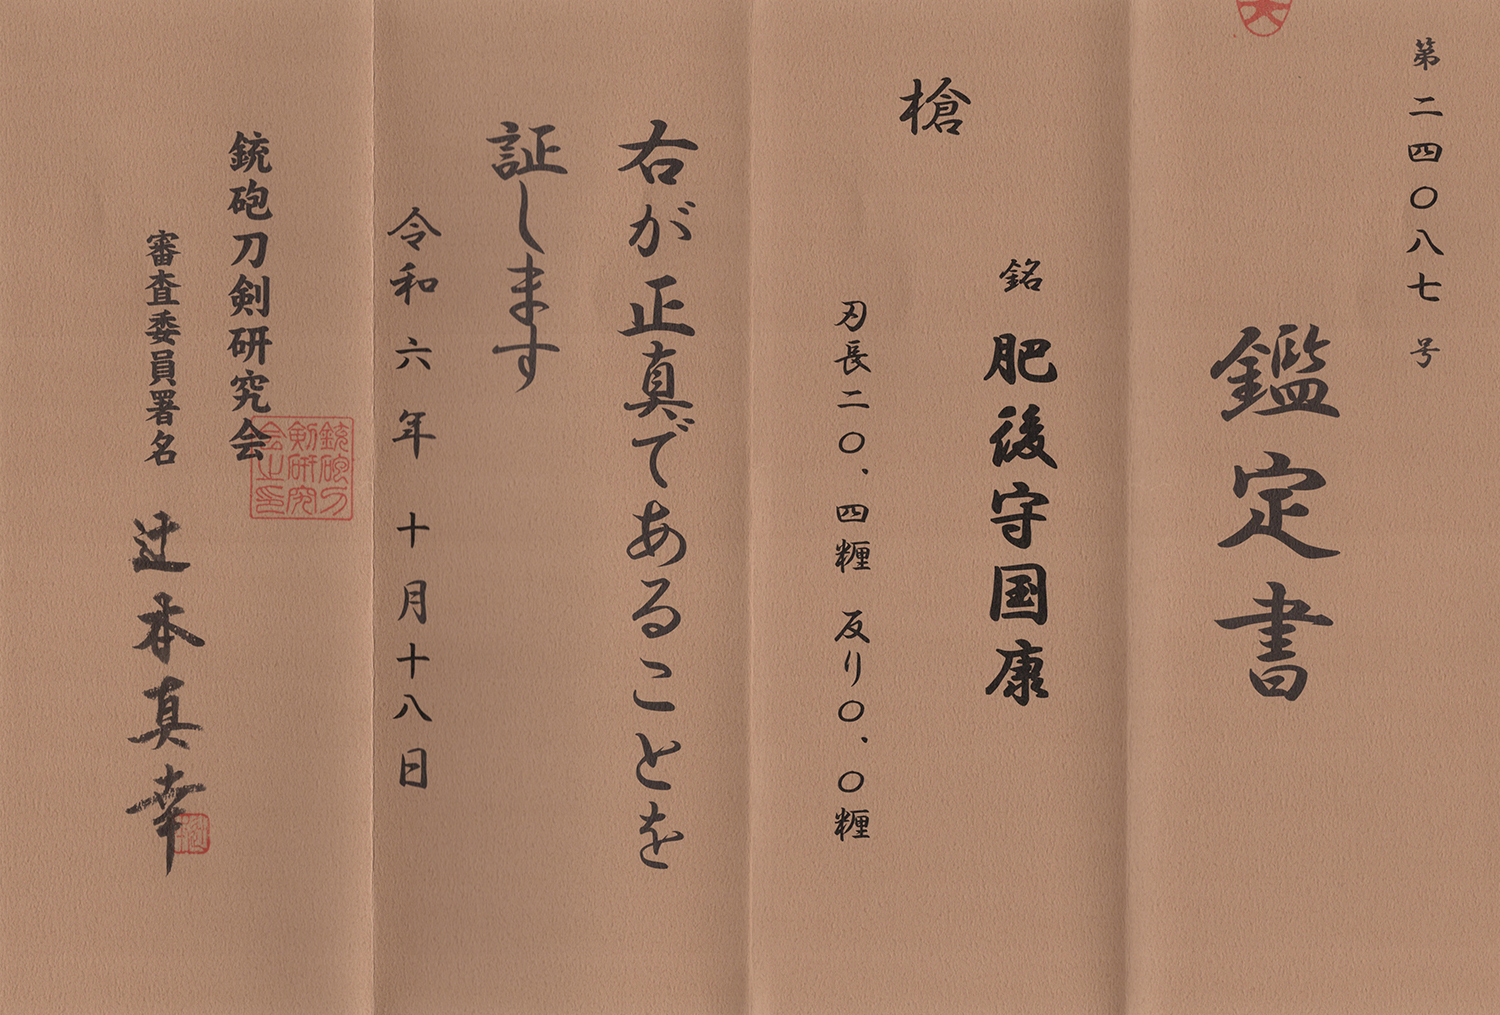 第二四〇八七号
鑑定書
銘 肥後守国康
槍
刃長二〇.四糎 反り〇.〇糎
右が正真であることを
証します
令和六年 十月十八日
銃砲刀剣研究会
銃砲刀
剣研究
会之印
審査委員署名 辻本真幸